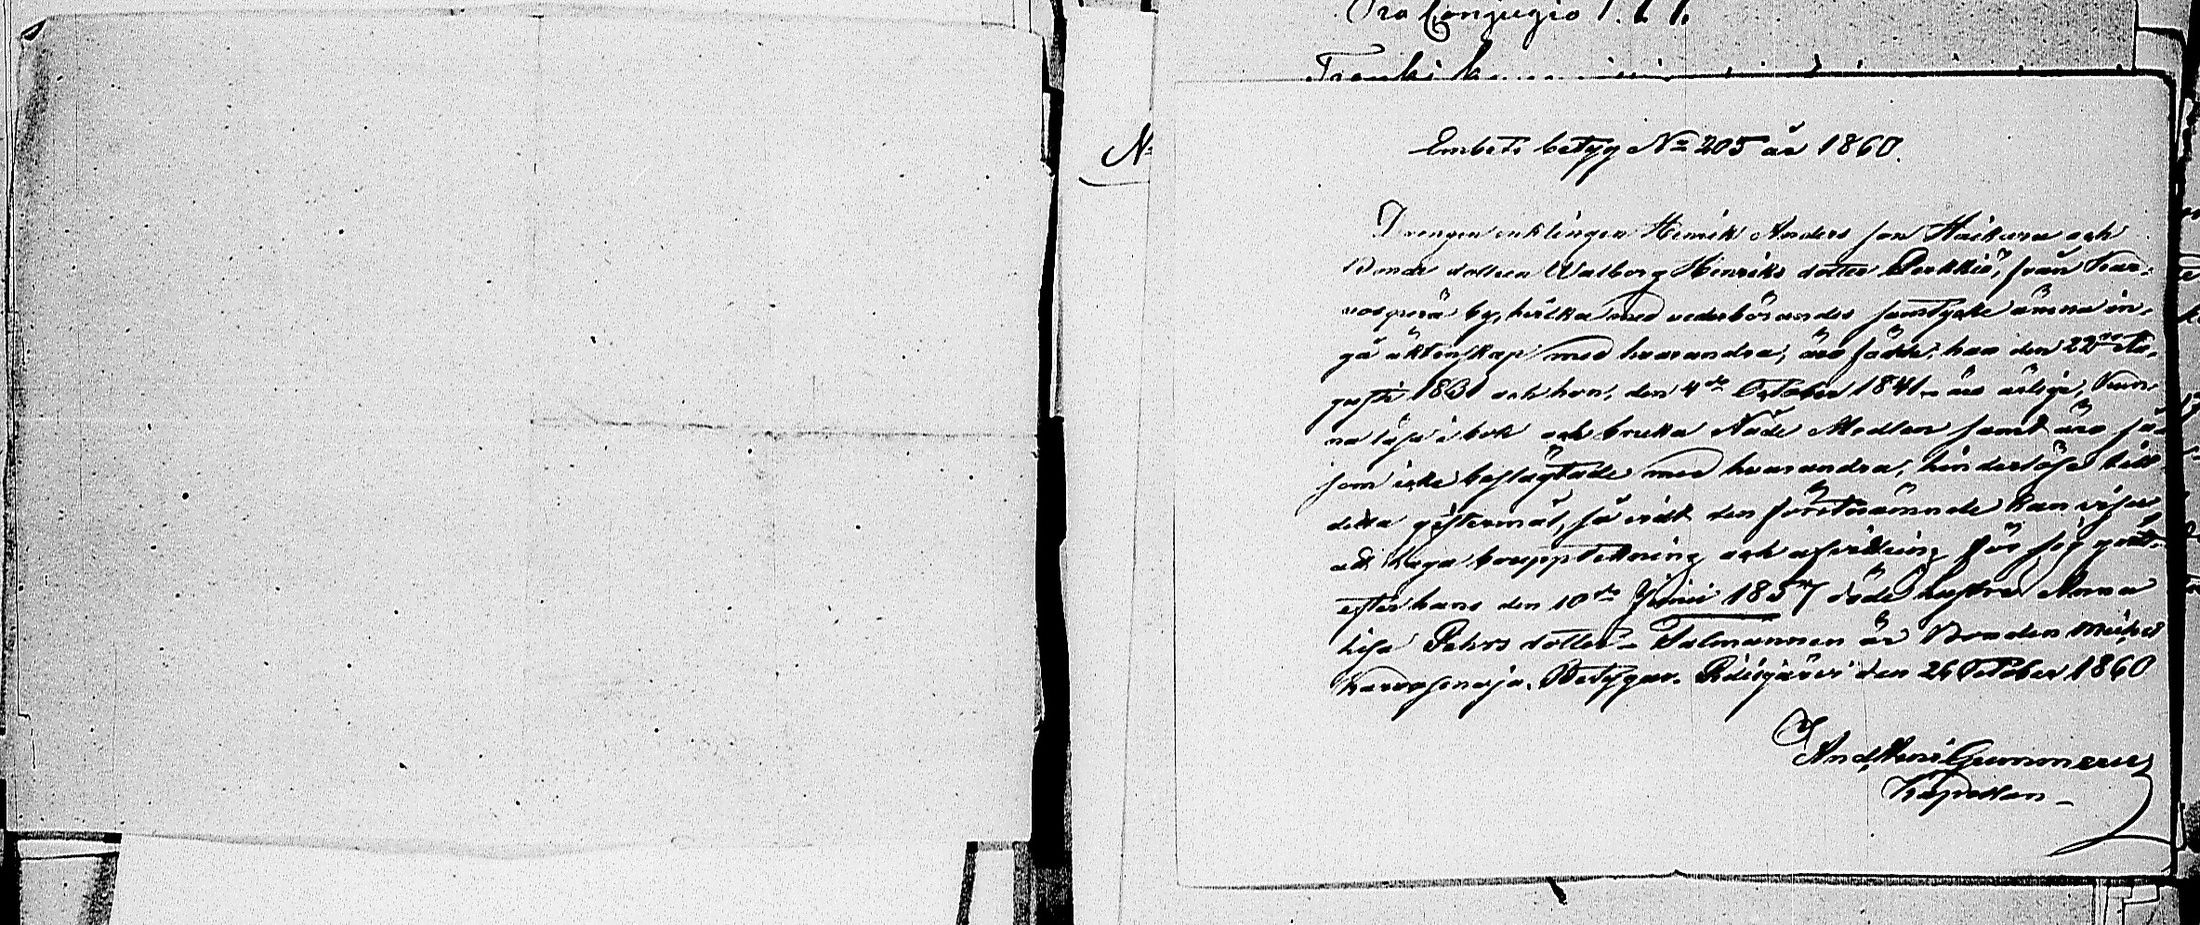 Pro Conjugio P. L. L.
No
Embets betyg No 205 år 1860.
Drengen enklingen Henrik Anders son Haikara och
Bonde dottren Walborg Henriks dotter Perkkiö, från Kar-
vosperä by, hvilka med vederbörandes samtycke ämna in-
gå äktenskap med hvarandra, äro födde, han den 22dre Au-
gusti 1831 och hon, den 4de October 1841, äro ärlige, kun-
na läsa i bok och bruka Nåde Medlen samt äro så-
som icke beslägtade med hvarandra, hinderlöse till
detta giftermål, så vidt den förstnämnde kan visa,
att laga bouppteckning och afvittring för sig gått
efter hans den 10de Junii 1857 döde hustru Anna
Lisa Pehrs dotter – Talmannen är Bonden Michel
Karvosenoja. Betygar. Pidisjärvi den 26 October 1860
And, Henr Gummerus
Kapellan –